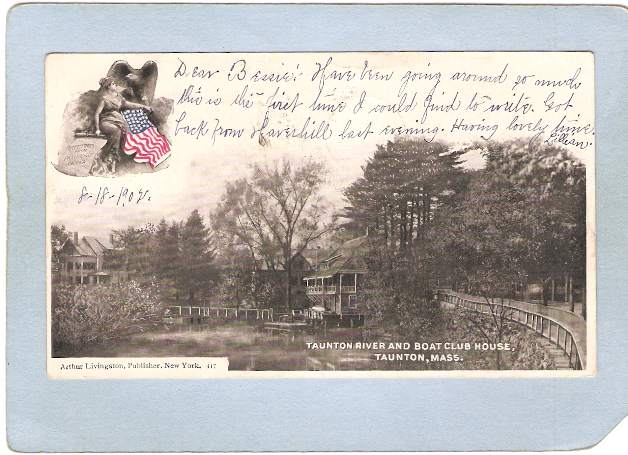 Dear Bessie: Have been going around so much
this is the first time I could find to write. Got
back from Haverhill last evening. Having lovely time.
Lilian.
8-18-1902.
TAUNTON RIVER AND BOAT CLUB HOUSE,
TAUNTON, MASS.
Arthur Livingston, Publisher, New York. 417